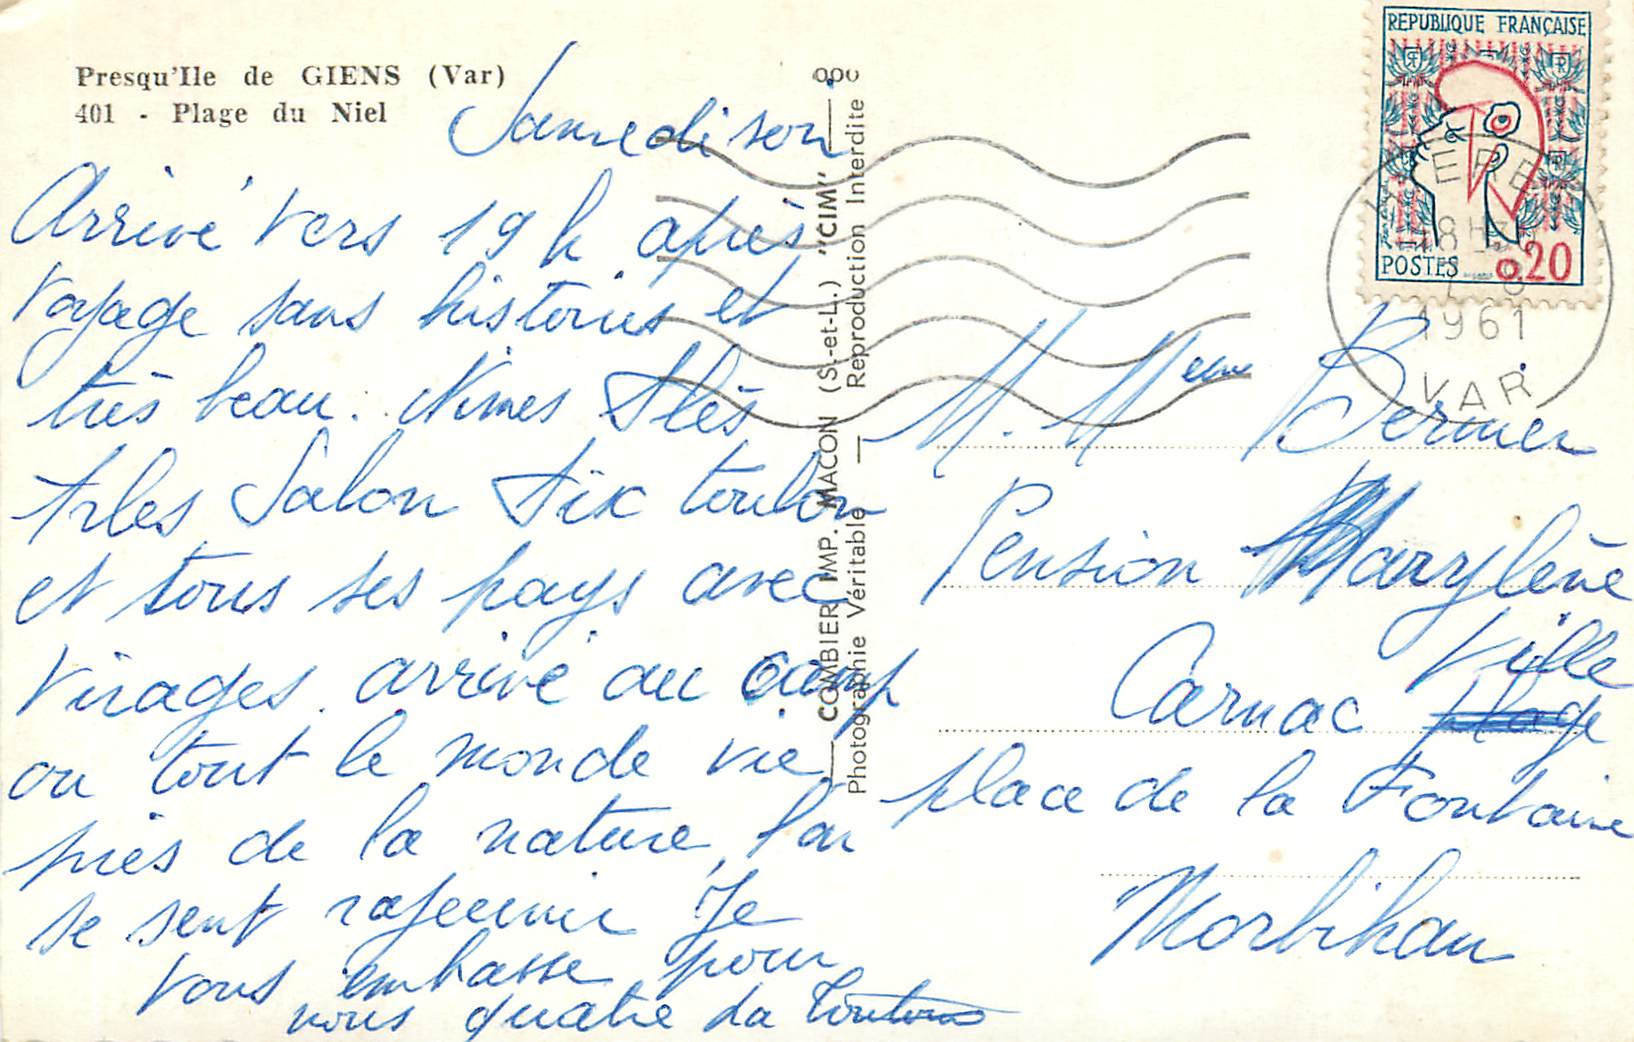 Presqu'Ile de GIENS (Var)
401 - Plage du Niel
Samedi soir
Arrivé vers 19 h après
voyage sans histoires et
très beau. Nimes Alès
Arles Salon Aix toulon
et tous ses pays avec
virages. arrivé au camp
ou tout le monde vie
près de la nature, lon
se sent rajeunir Je
vous embasse pour
nous quatre La
COMBIER IMP. MACON (S.-et-L.) "CIM"
Photographie Véritable — Reproduction Interdite
REPUBLIQUE FRANÇAISE
POSTES 0,20
18H
1961
VAR
M. Meme Bernier
Pension Marylène
Ville
Carnac plage
place de la Fontaine
Morbihan